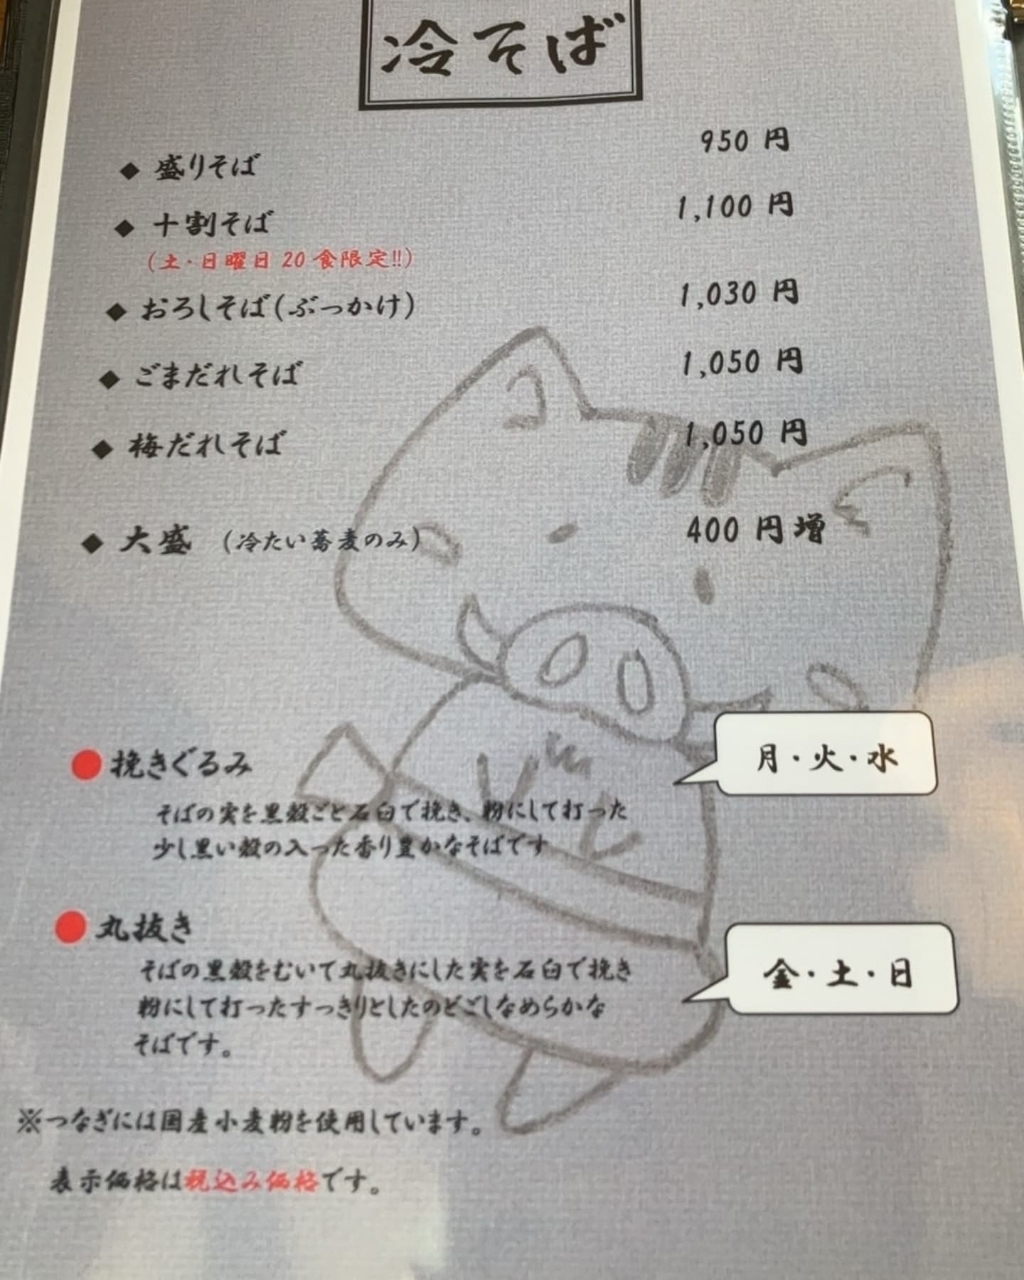 冷そば
◆ 盛りそば 950 円
◆ 十割そば 1,100 円
(土・日曜日 20 食限定!!)
◆ おろしそば(ぶっかけ) 1,030 円
◆ ごまだれそば 1,050 円
◆ 梅だれそば 1,050 円
◆ 大盛 (冷たい蕎麦のみ) 400 円増
● 挽きぐるみ
月・火・水
そばの実を黒殻ごと石臼で挽き、粉にして打った
少し黒い殻の入った香り豊かなそばです
● 丸抜き
金・土・日
そばの黒殻をむいて丸抜きにした実を石臼で挽き
粉にして打ったすっきりとしたのどごしなめらかな
そばです。
※つなぎには国産小麦粉を使用しています。
表示価格は税込み価格です。